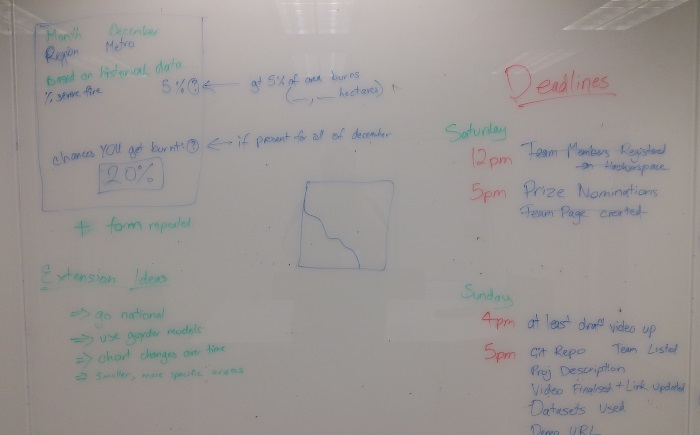 Month December
Region Metro
Based on historical data
% severe fire 5% ? ← get 5% of area burns
(__, ___ hectares)
chances YOU get burnt ? ← if present for all of december
20%
+ form repeated
Extension Ideas
⇒ go national
⇒ use models
⇒ chart changes over time
⇒ smaller, more specific areas
Deadlines
Saturday
12pm Team Members Registered
→ Hackerspace
5pm Prize Nominations
Team Page created
Sunday
4pm at least draft video up
5pm Git Repo Team Listed
Proj Description
Video Finalised + Link Updated
Datasets Used
Demo URL